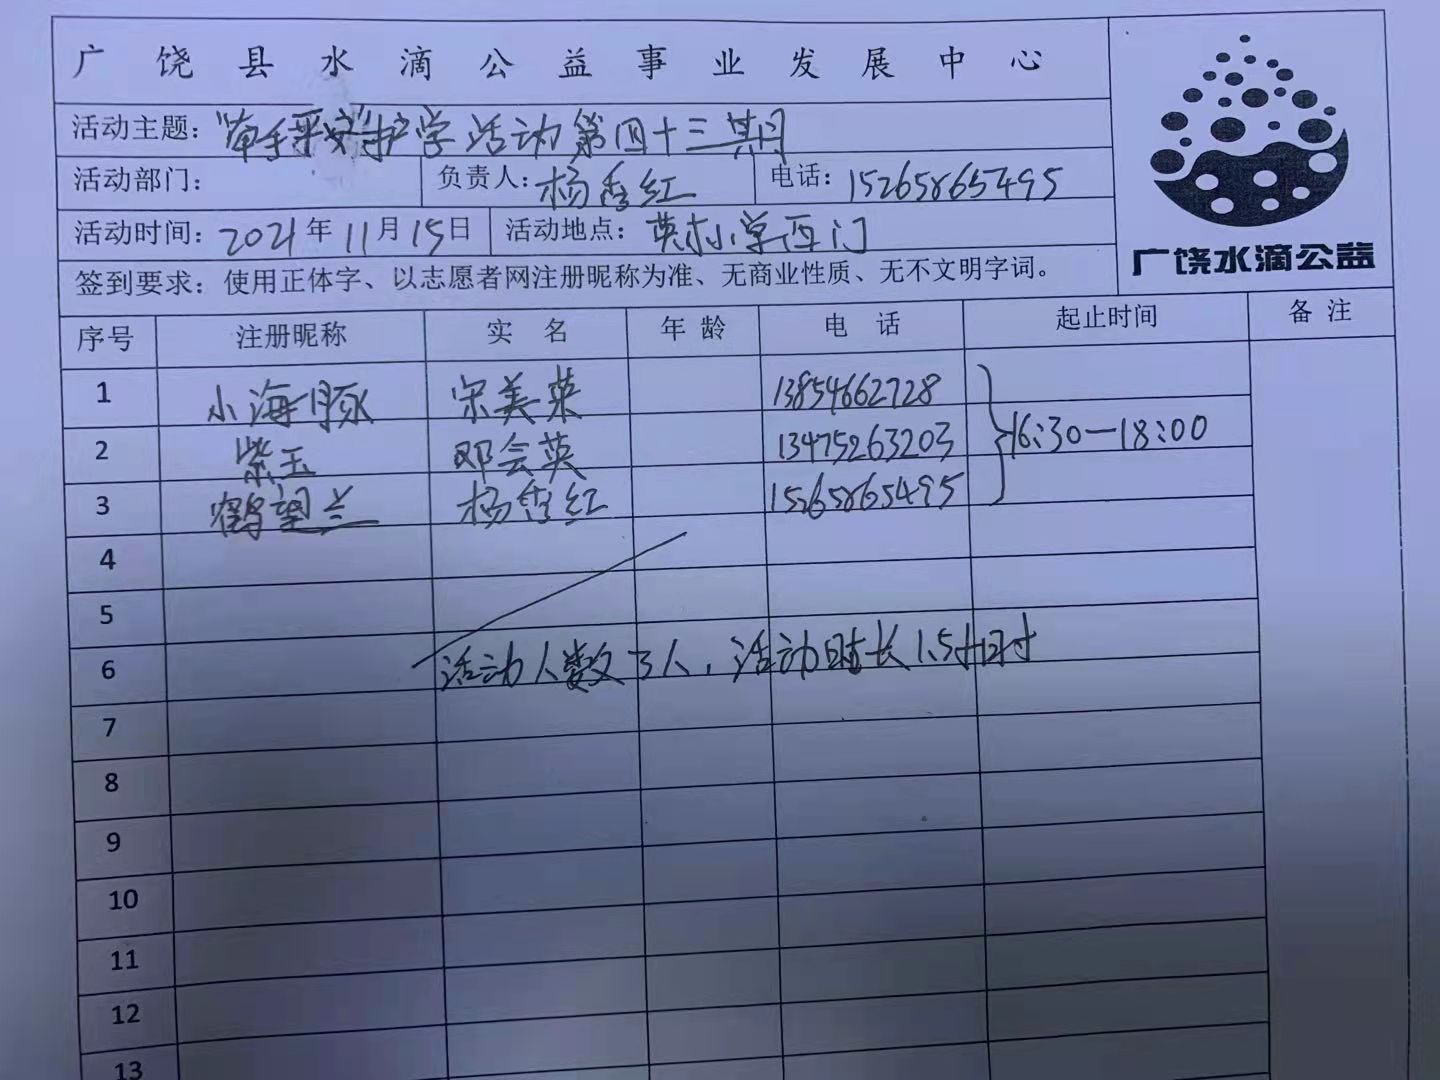 广饶县水滴公益事业发展中心
活动主题：“牵手平安”护学活动第四十三期
活动部门： 负责人：杨秀红 电话：15265865495
活动时间：2021年11月15日 活动地点：英才小学西门
签到要求：使用正体字、以志愿者网注册昵称为准、无商业性质、无不文明字词。
广饶水滴公益
序号 注册昵称 实名 年龄 电话 起止时间 备注
1 小海豚 宋美荣 13854662728
2 紫玉 邓会英 13475263203 16:30—18:00
3 鹤望兰 杨秀红 15265865495
4
5
6 活动人数3人，活动时长1.5小时
7
8
9
10
11
12
13